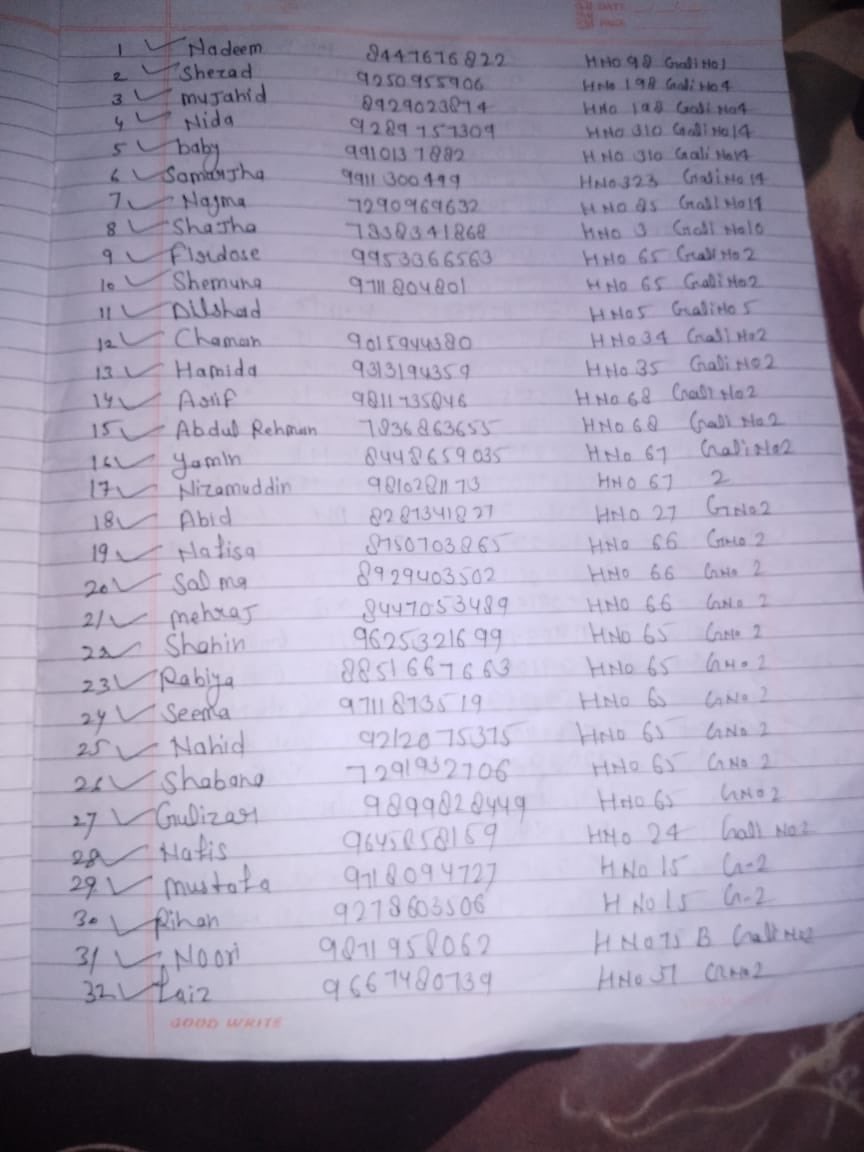 1 Nadeem 8447676822 HNo 98 Gali No 1
2 Shezad 9250955906 HNo 198 Gali No 4
3 mujahid 8929023874 HNo 198 Gali No4
4 Nida 9289757309 HNo 310 Gali No 14
5 baby 9910137882 HNo 310 Gali No14
6 9911300499 HNo 323 Gali No 14
7 Najma 7290969632 HNo 85 Gali No14
8 Shajha 7838341868 HNo 3 Gali No10
9 Firdose 9953366563 HNo 65 Gali No 2
10 Shemuna 9711804801 HNo 65 Gali No2
11 Dilshad HNo5 Gali No 5
12 Chaman 9015944380 HNo 34 Gali No2
13 Hamida 9313194359 HNo 35 Gali No2
14 Asif 9811735846 HNo 68 Gali No2
15 Abdul Rehman 7836863655 HNo 68 Gali No 2
16 Yamin 8448659035 HNo 67 Gali No2
17 Nizamuddin 9810281173 HNO 67 2
18 Abid 8287341827 HNo 27 GNo2
19 Nafisa 8750703865 HNo 66 GNo 2
20 Salma 8929403502 HNo 66 GNo 2
21 mehraj 8447053489 HNo 66 GNo 2
22 Shahin 9625321699 HNo 65 GNo 2
23 Rabiya 8851667663 HNo 65 GNo 2
24 Seema 9711873519 HNo 65 GNo 2
25 Nahid 9212075375 HNo 65 GNo 2
26 Shabana 7291932706 HNo 65 GNo 2
27 Gulizar 9899828449 HNo 65 GNo2
28 Nafis 9645858159 HNo 24 Gali No2
29 mustafa 9718094727 HNo 15 G-2
30 Rihan 9278603506 HNo 15 G-2
31 Noori 9871958062 HNo 75 B Gali No2
32 Faiz 9667480739 HNo 57 GNo2
GOOD WRITE